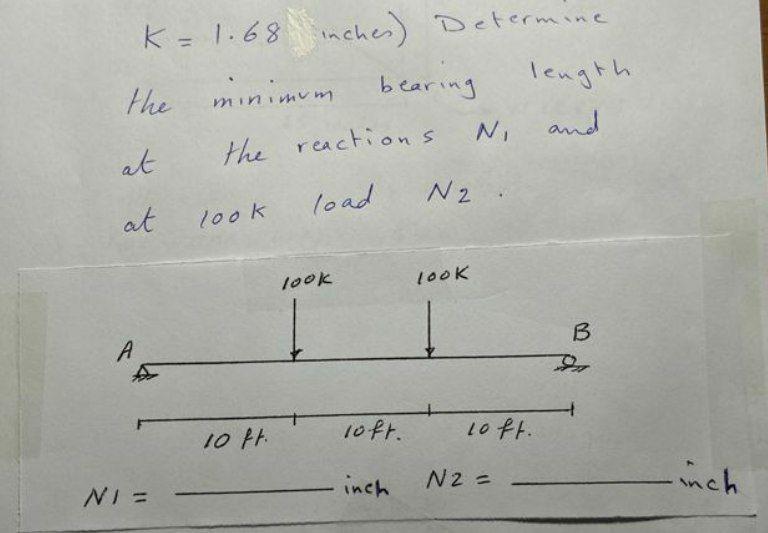 K = 1.68 inches) Determine
the minimum bearing length
at the reactions N1 and
at 100K load N2.
100K 100K
A B
10 ft. 10ft. 10ft.
N1 = ________ inch N2 = ________ inch